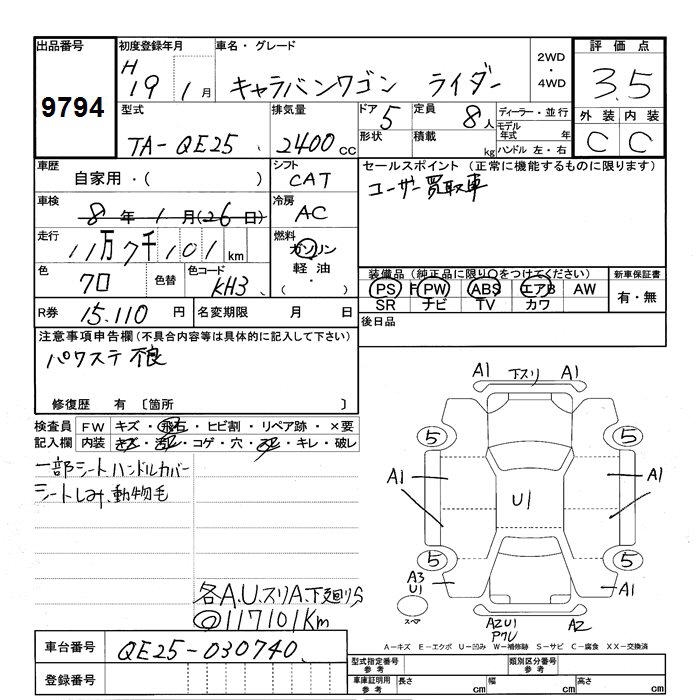 出品番号
9794
初度登録年月
H 19 1 月
車名・グレード
キャラバンワゴン ライダー
2WD
・
4WD
評価点
3.5
外装 内装
C C
型式
TA-QE25
排気量
2400 cc
ドア 5
形状
定員 8人
積載 kg
ディーラー・並行
モデル年式 年
ハンドル 左・右
車歴
自家用・( )
シフト
CAT
セールスポイント (正常に機能するものに限ります)
ユーザー買取車
車検
8年 1月(26日)
冷房
AC
走行
11万7千101 km
燃料
ガソリン
軽油
・
色
クロ
色替
色コード
KH3
装備品(純正品に限り○をつけてください)
PS PW ABS エアB AW
SR ナビ TV カワ
新車保証書
有・無
R券 15.110 円
名変期限 月 日
後日品
注意事項申告欄(不具合内容等は具体的に記入して下さい)
パワステ不良
修復歴 有 〔箇所 〕
検査員
記入欄
FW キズ・飛石・ヒビ割・リペア跡・×要
内装 キズ・汚レ・コゲ・穴・スレ・キレ・破レ
一部シート、ハンドルカバー
シートしみ、動物毛
各A.U.スリA.下廻りS
◎117101Km
A1 下スリ A1
5 5
A1 A1
U1
5 5
A3
U1
A1
スペア
A2U1
PクレU
A2
A-キズ E-エクボ U-凹み W-補修跡 S-サビ C-腐食 XX-交換済
車台番号
QE25-030740
登録番号
型式指定番号
参考
類別区分番号
参考
車庫証明用
参考
長さ cm
幅 cm
高さ cm